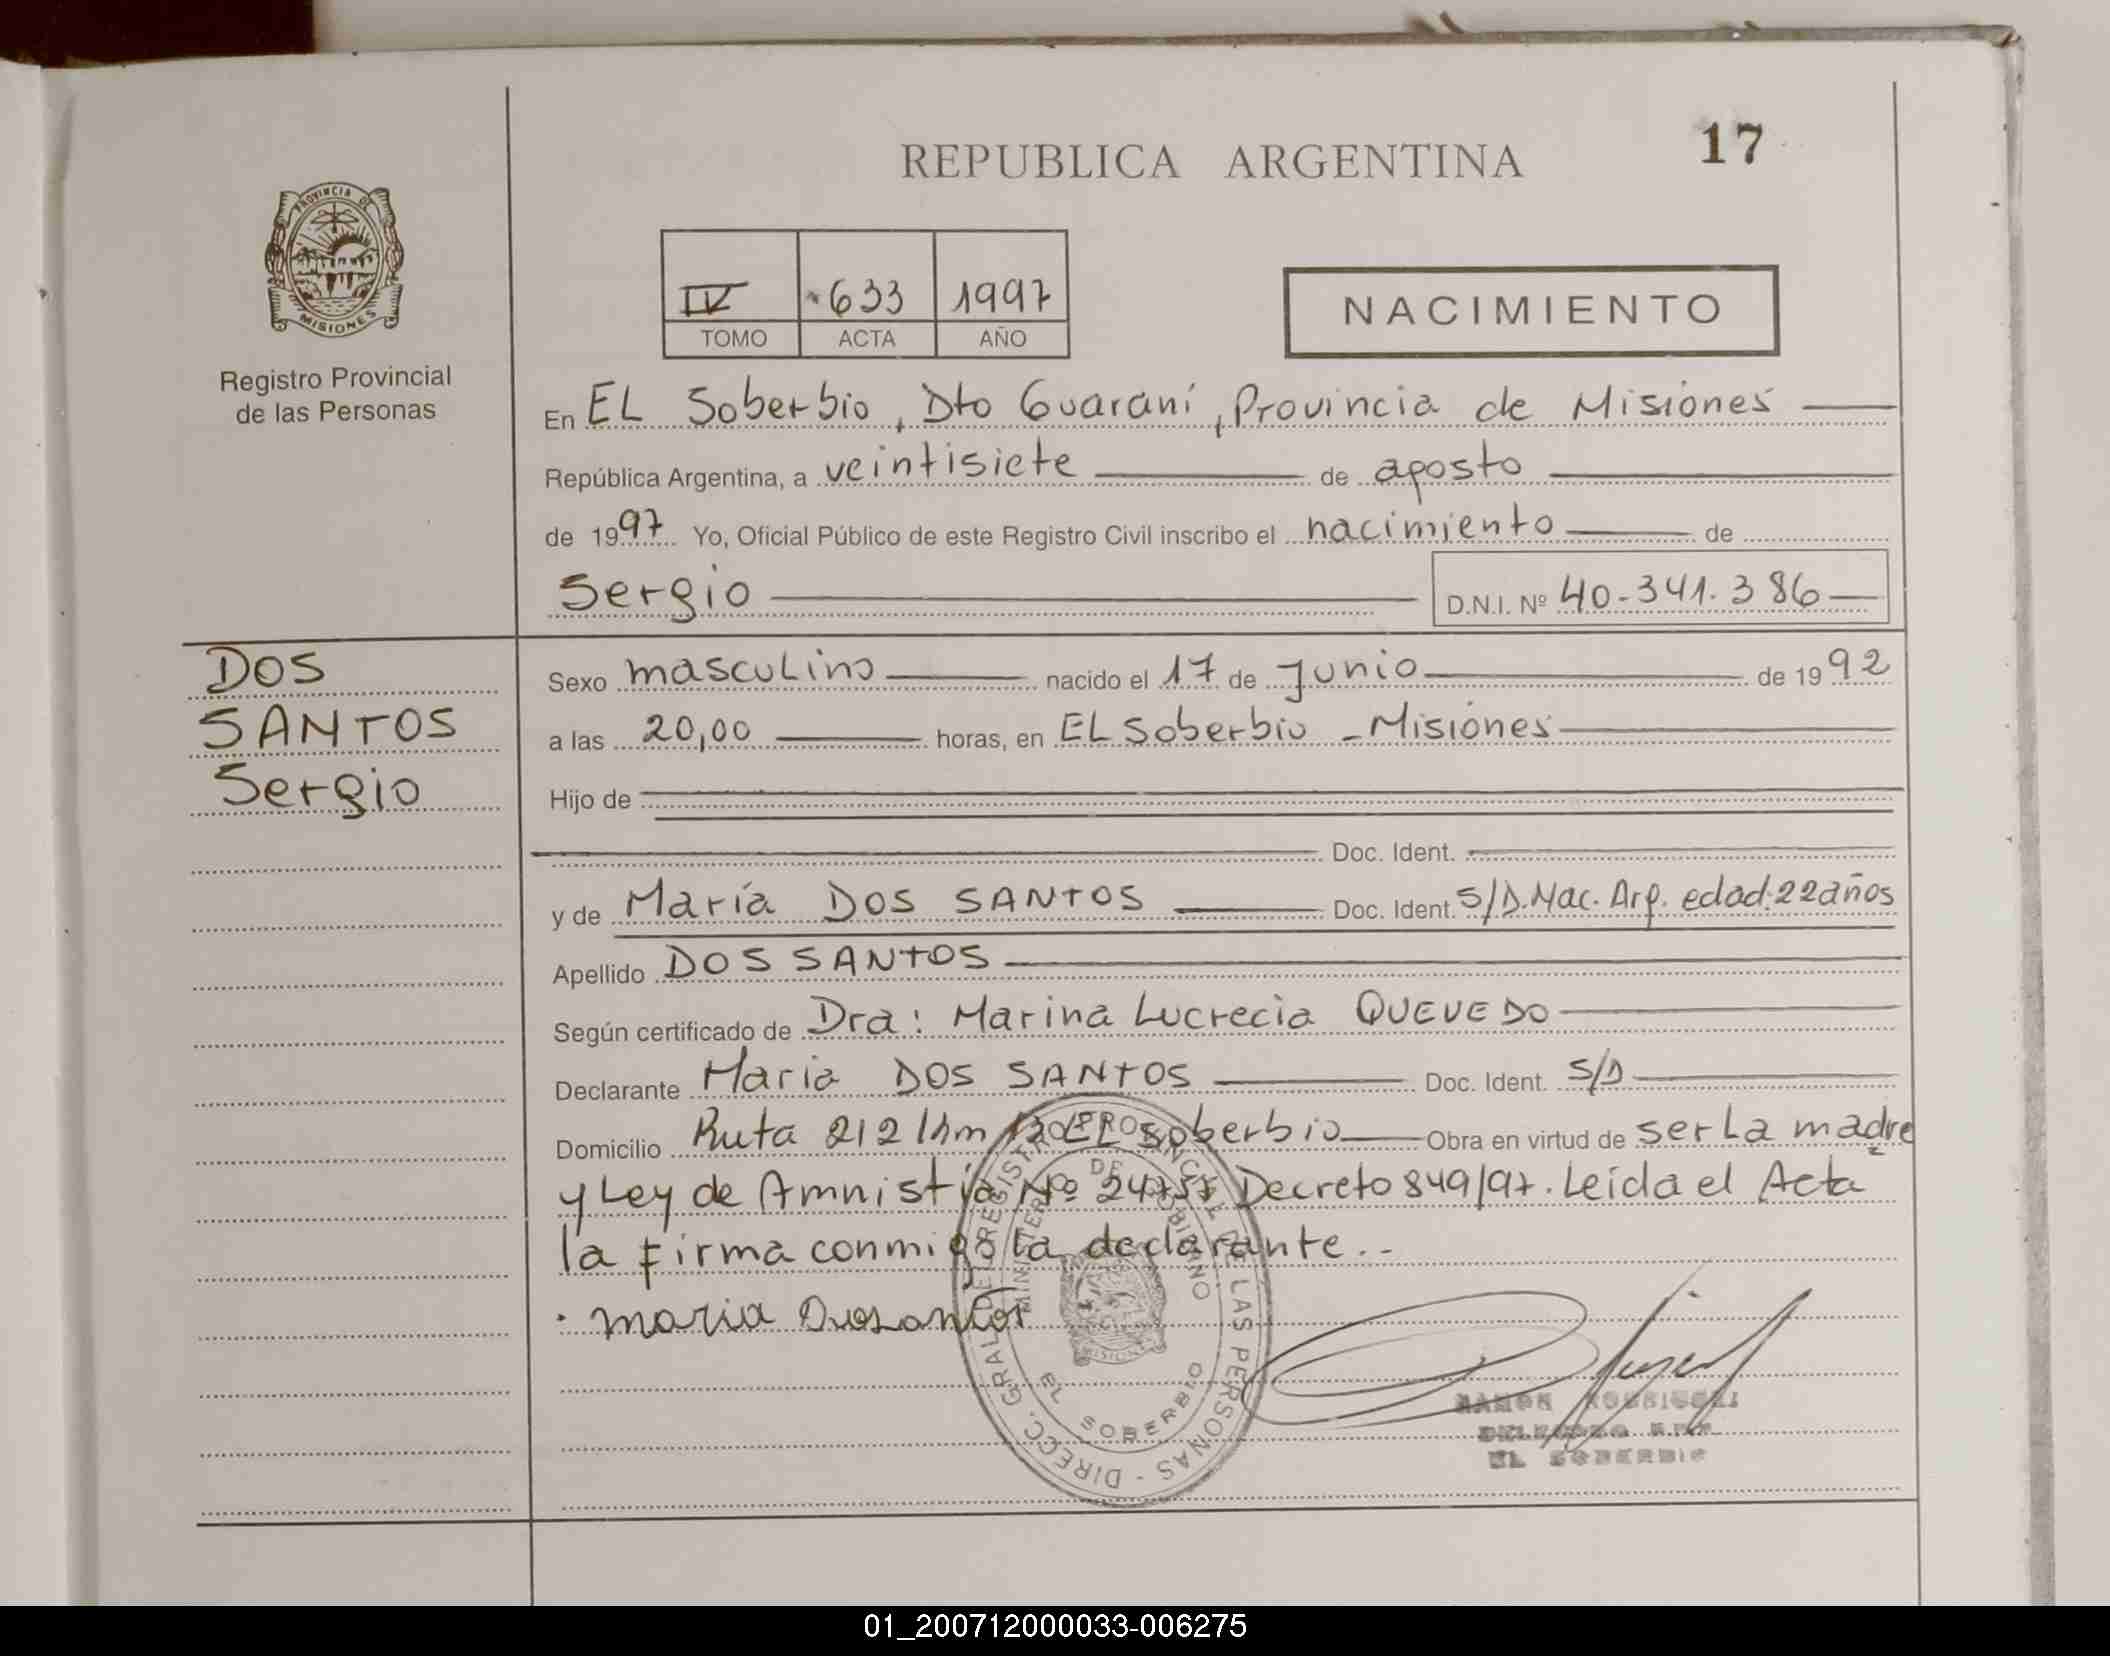 REPUBLICA ARGENTINA
17
PROVINCIA DE
MISIONES
Registro Provincial
de las Personas
IV 633 1997
TOMO ACTA AÑO
NACIMIENTO
En EL Soberbio, Dto Guaraní, Provincia de Misiones
República Argentina, a veintisiete de agosto
de 1997 Yo, Oficial Público de este Registro Civil inscribo el nacimiento de
Sergio D.N.I. Nº 40-341.386
DOS
SANTOS
Sergio
Sexo masculino nacido el 17 de Junio de 1992
a las 20,00 horas, en EL Soberbio - Misiones
Hijo de
Doc. Ident.
y de María DOS SANTOS Doc. Ident. S/D. Nac. Arg. edad: 22 años
Apellido DOS SANTOS
Según certificado de Dra: Marina Lucrecia QUEVEDO
Declarante Maria DOS SANTOS Doc. Ident. S/D
Domicilio Ruta 212 Km 13 EL Soberbio Obra en virtud de ser La madre
y Ley de Amnistía Nº Decreto 849/97. Leída el Acta
la firma conmigo la declarante..
maria
DIRECC. GRAL. DEL REGISTRO PROVINCIAL DE LAS PERSONAS
MINISTERIO DE GOBIERNO
MISIONES
EL SOBERBIO
RAMON
EL SOBERBIO
01_200712000033-006275